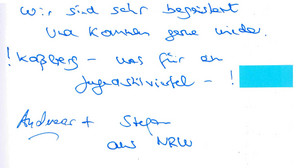 Wir sind sehr begeistert
und kommen gerne wieder.
! Kaßberg – was für ein
Jugendstilviertel – !
Andreas + Stefan
aus NRW